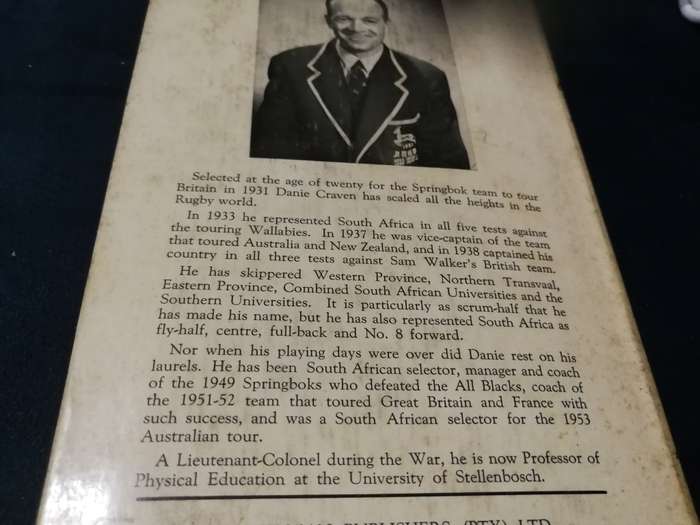 Selected at the age of twenty for the Springbok team to tour
Britain in 1931 Danie Craven has scaled all the heights in the
Rugby world.
In 1933 he represented South Africa in all five tests against
the touring Wallabies. In 1937 he was vice-captain of the team
that toured Australia and New Zealand, and in 1938 captained his
country in all three tests against Sam Walker's British team.
He has skippered Western Province, Northern Transvaal,
Eastern Province, Combined South African Universities and the
Southern Universities. It is particularly as scrum-half that he
has made his name, but he has also represented South Africa as
fly-half, centre, full-back and No. 8 forward.
Nor when his playing days were over did Danie rest on his
laurels. He has been South African selector, manager and coach
of the 1949 Springboks who defeated the All Blacks, coach of
the 1951-52 team that toured Great Britain and France with
such success, and was a South African selector for the 1953
Australian tour.
A Lieutenant-Colonel during the War, he is now Professor of
Physical Education at the University of Stellenbosch.
PUBLISHERS (PTY) LTD